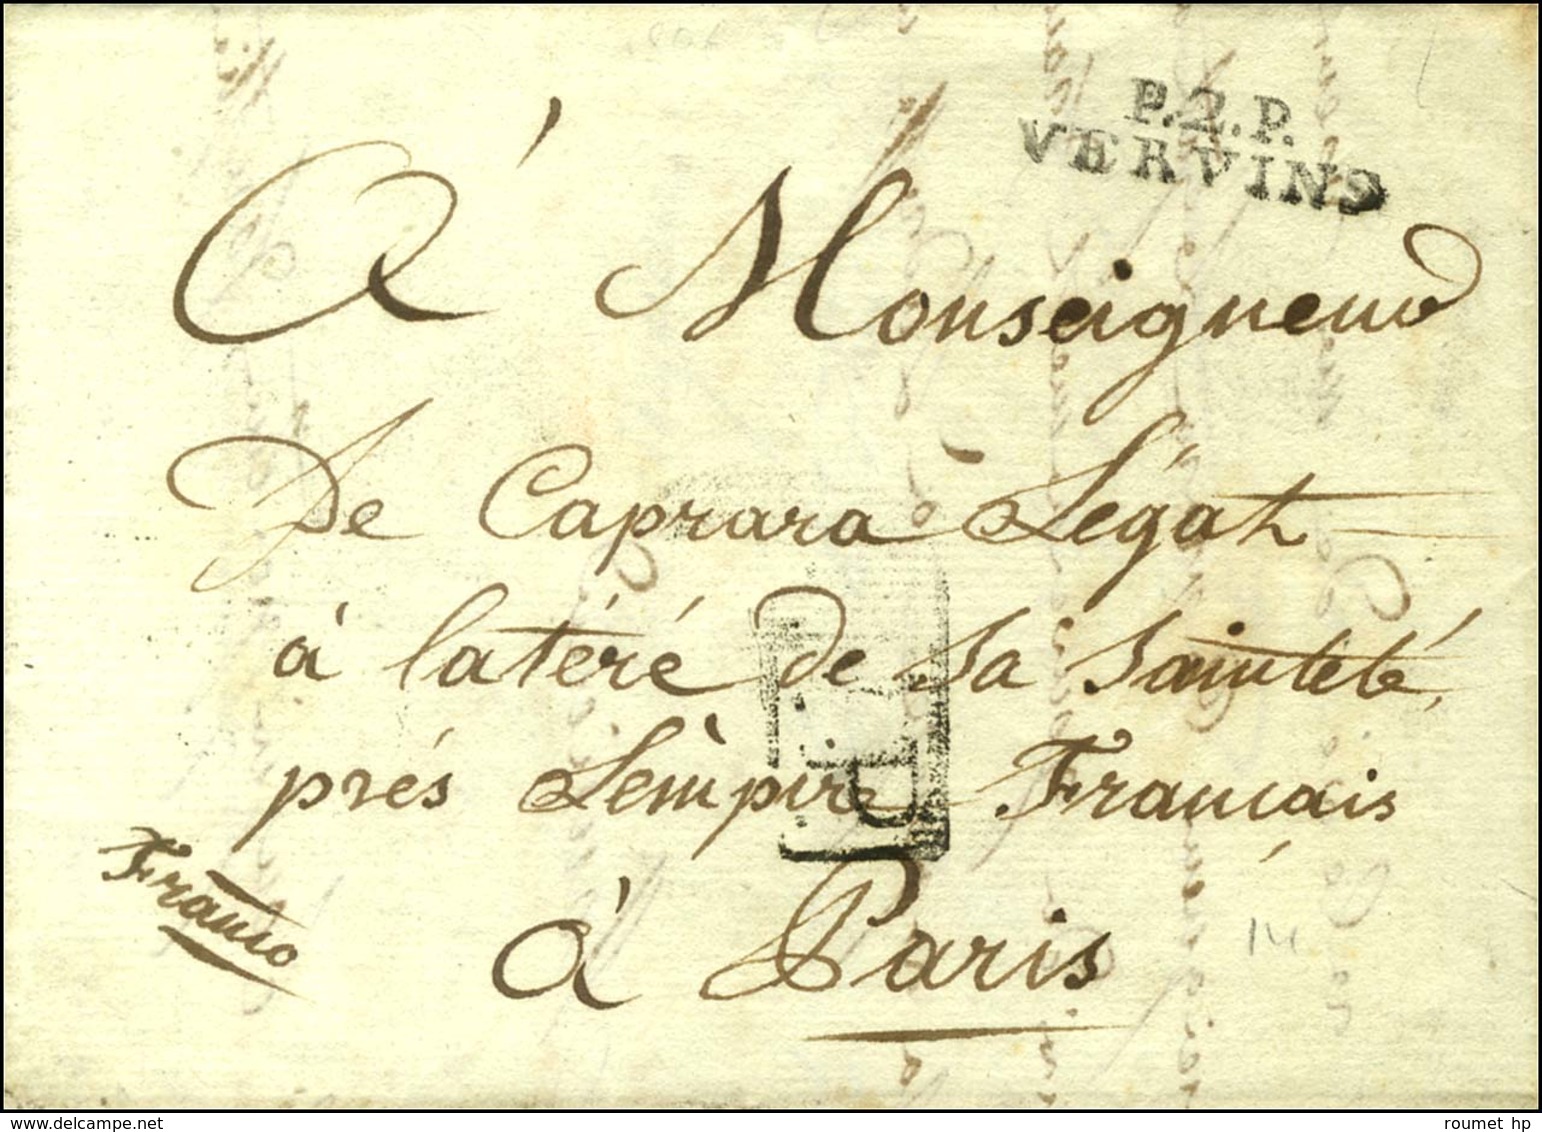 P.2.P.
VERVINS
À Monseigneur
De Caprara Légat
à latéré de Sa Sainteté,
prés L'empire Francais
Franco
à Paris
14
P.P.
delcampe.net
roumet hp